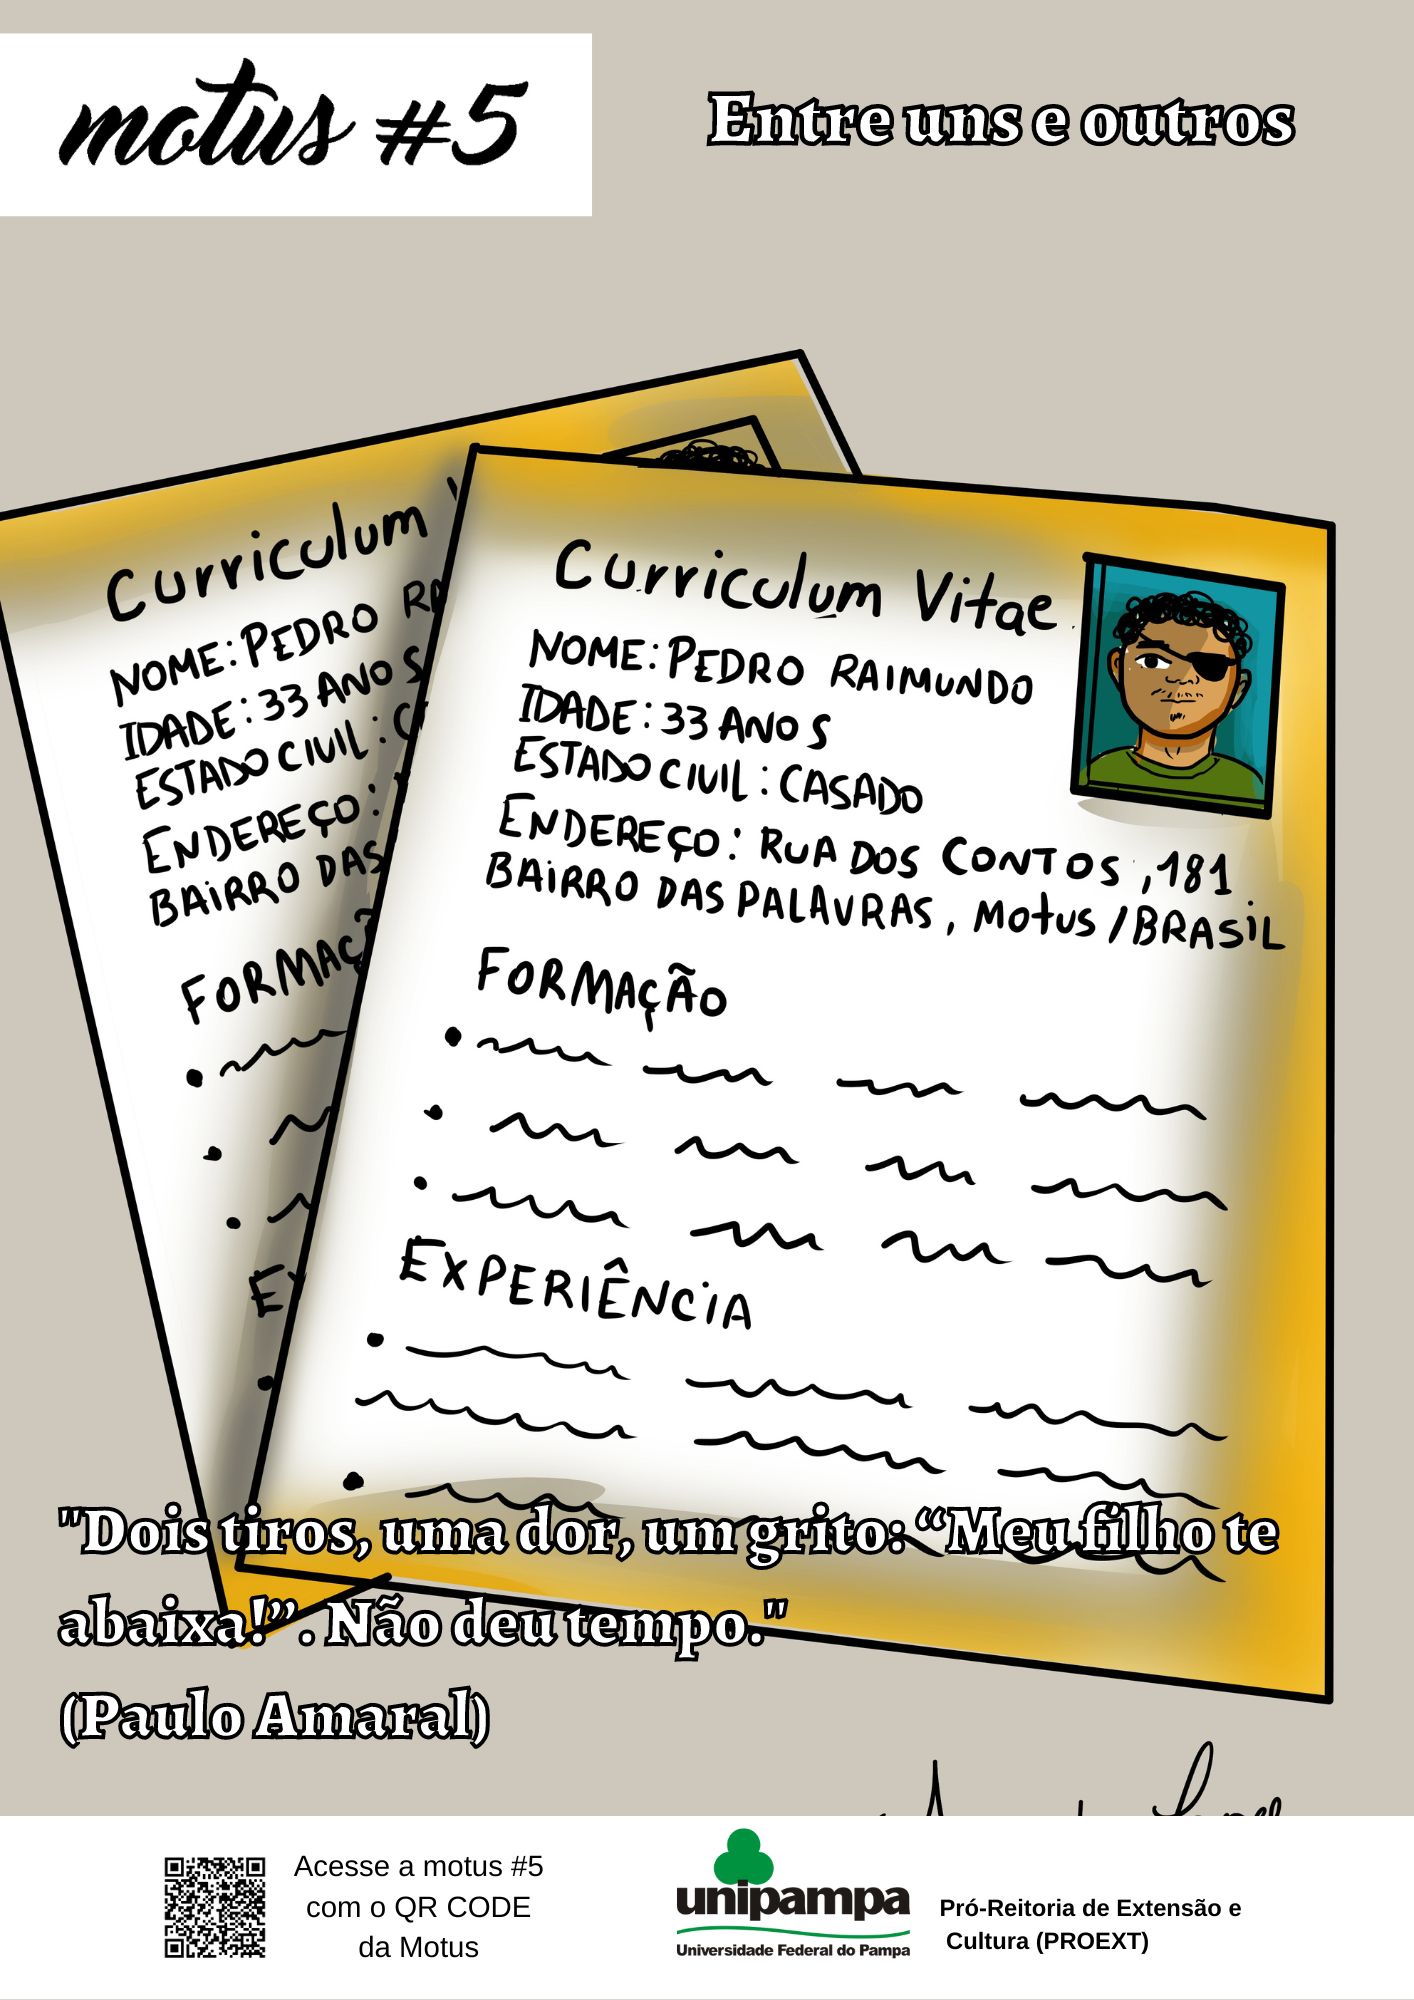 motus #5
Entre uns e outros
Curriculum
NOME: PEDRO
IDADE: 33 ANOS
ESTADO CIVIL:
ENDEREÇO:
BAIRRO DAS
Curriculum Vitae
NOME: PEDRO RAIMUNDO
IDADE: 33 ANOS
ESTADO CIVIL: CASADO
ENDEREÇO: RUA DOS CONTOS, 181
BAIRRO DAS PALAVRAS, Motus / BRASIL
FORMAÇÃO
EXPERIÊNCIA
"Dois tiros, uma dor, um grito: “Meu filho te
abaixa!”. Não deu tempo."
(Paulo Amaral)
Acesse a motus #5
com o QR CODE
da Motus
unipampa
Universidade Federal do Pampa
Pró-Reitoria de Extensão e
Cultura (PROEXT)